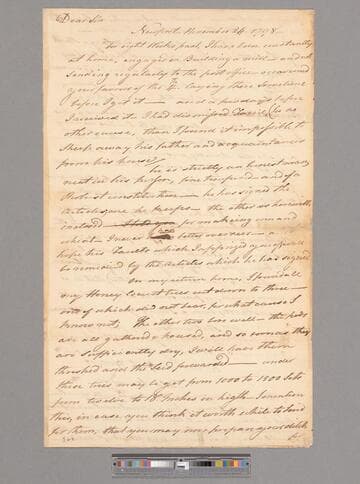 Dear Sir
Newport November 24 1798
For eight Weeks past, I have been constantly
at home, engaged in Building a mill — and not
sending regularly to the post office — occasioned
your favour of the laying there sometime
before I got it — and a few days before
I received it I had dismissed Daniel (for no
other cause, than I found it impossible to
keep away his father and acquaintances
from his house)
he is strictly an honest man
neat in his person, fine tempered and of a
Robust constitution — he has signed the
articles, one he keeps — the other as herewith
inclosed for making an and
wheat — I never saw better
hope his Faults which I supposed you as
be remedied by the articles which he has signed
on my return home, I found all
my Honey locust trees cut down to three —
one of which did not bear, for what cause I
know not, The other two bore well — the pods
are all gathered & housed, and so soon as they
are sufficiently dry, I will have them
thrashed and the seed forwarded — under
these trees may be got from 1000 to 1500 Sets
from twelve to 18 Inches in high. I mention
this, in case you think it worth while to send
for them, that you may